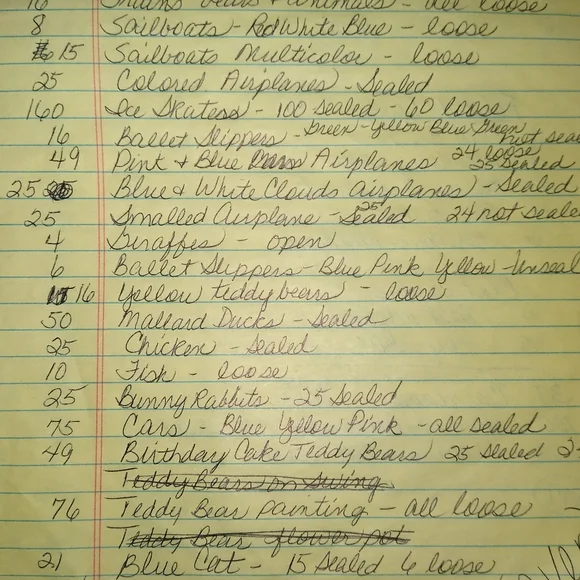 16 Trains bears & animals - all loose
8 Sailboats - Red White Blue - loose
15 Sailboats Multicolor - loose
25 Colored Airplanes - Sealed
160 Ice Skates - 100 sealed - 60 loose
16 Ballet Slippers - Green - Yellow Blue Green not sea
49 Pink & Blue Airplanes 24 loose 25 sealed
25 Blue & White Clouds airplanes - Sealed
25 Smalled Airplane - Sealed 25 24 not seale
4 Giraffes - open
6 Ballet Slippers - Blue Pink Yellow - Unseal
16 Yellow teddy bears - loose
50 Mallard Ducks - Sealed
25 Chicken - sealed
10 Fish - loose
25 Bunny Rabbits - 25 sealed
75 Cars - Blue Yellow Pink - all sealed
49 Birthday Cake Teddy Bears 25 sealed 2
Teddy Bears on swing
76 Teddy Bear painting - all loose -
Teddy Bear flower pot
21 Blue Cat - 15 Sealed 6 loose